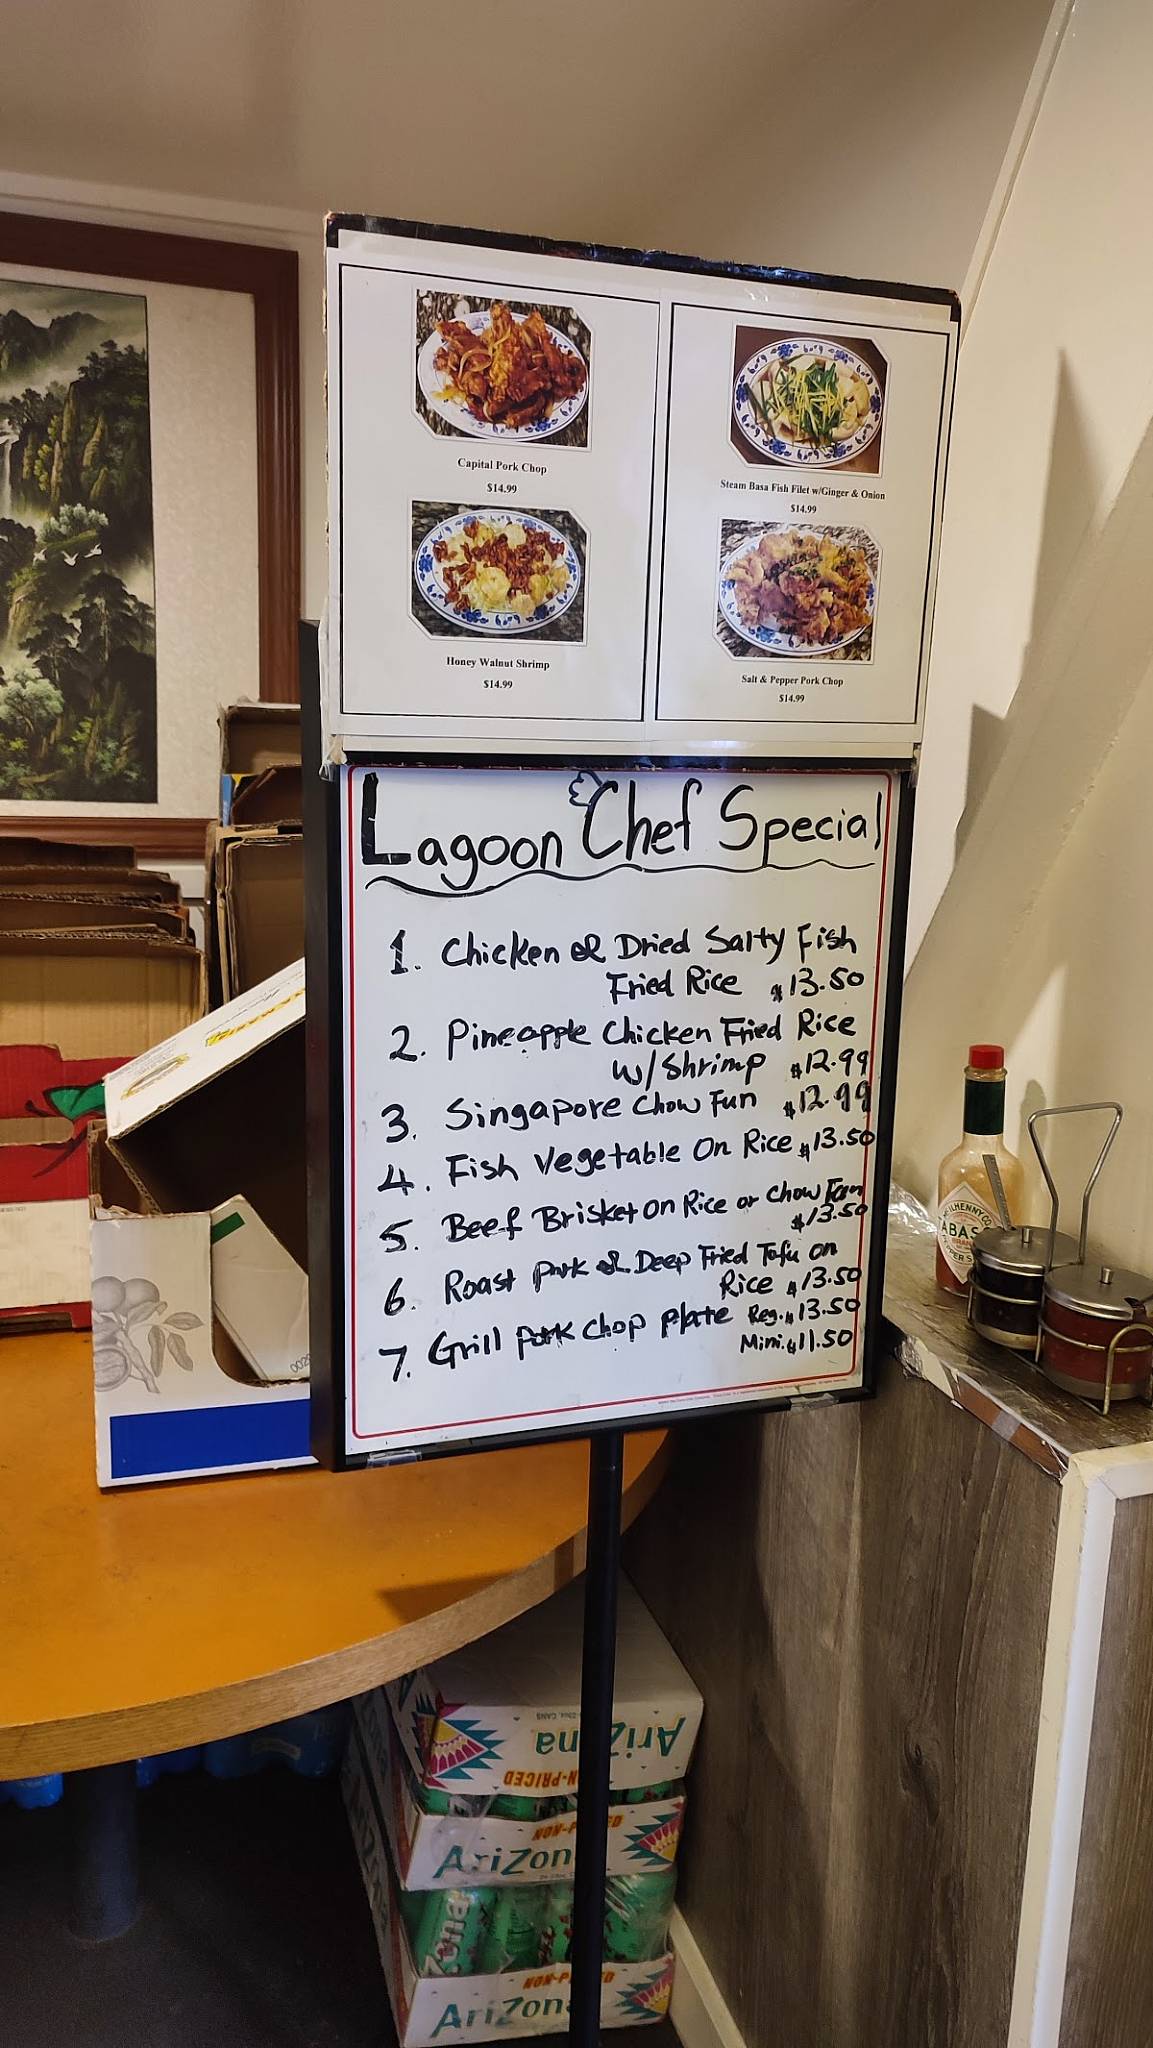 Capital Pork Chop
$14.99
Steam Basa Fish Filet w/Ginger & Onion
$14.99
Honey Walnut Shrimp
$14.99
Salt & Pepper Pork Chop
$14.99
Lagoon Chef Special
1. Chicken & Dried Salty Fish
Fried Rice $13.50
2. Pineapple Chicken Fried Rice
w/Shrimp $12.99
3. Singapore Chow Fun $12.99
4. Fish Vegetable On Rice $13.50
5. Beef Brisket on Rice or Chow Fun
$13.50
6. Roast Pork & Deep Fried Tofu on
Rice $13.50
7. Grill Pork Chop Plate Reg. $13.50
Mini. $11.50
AriZona
NON-PRICED
AriZona
AriZona